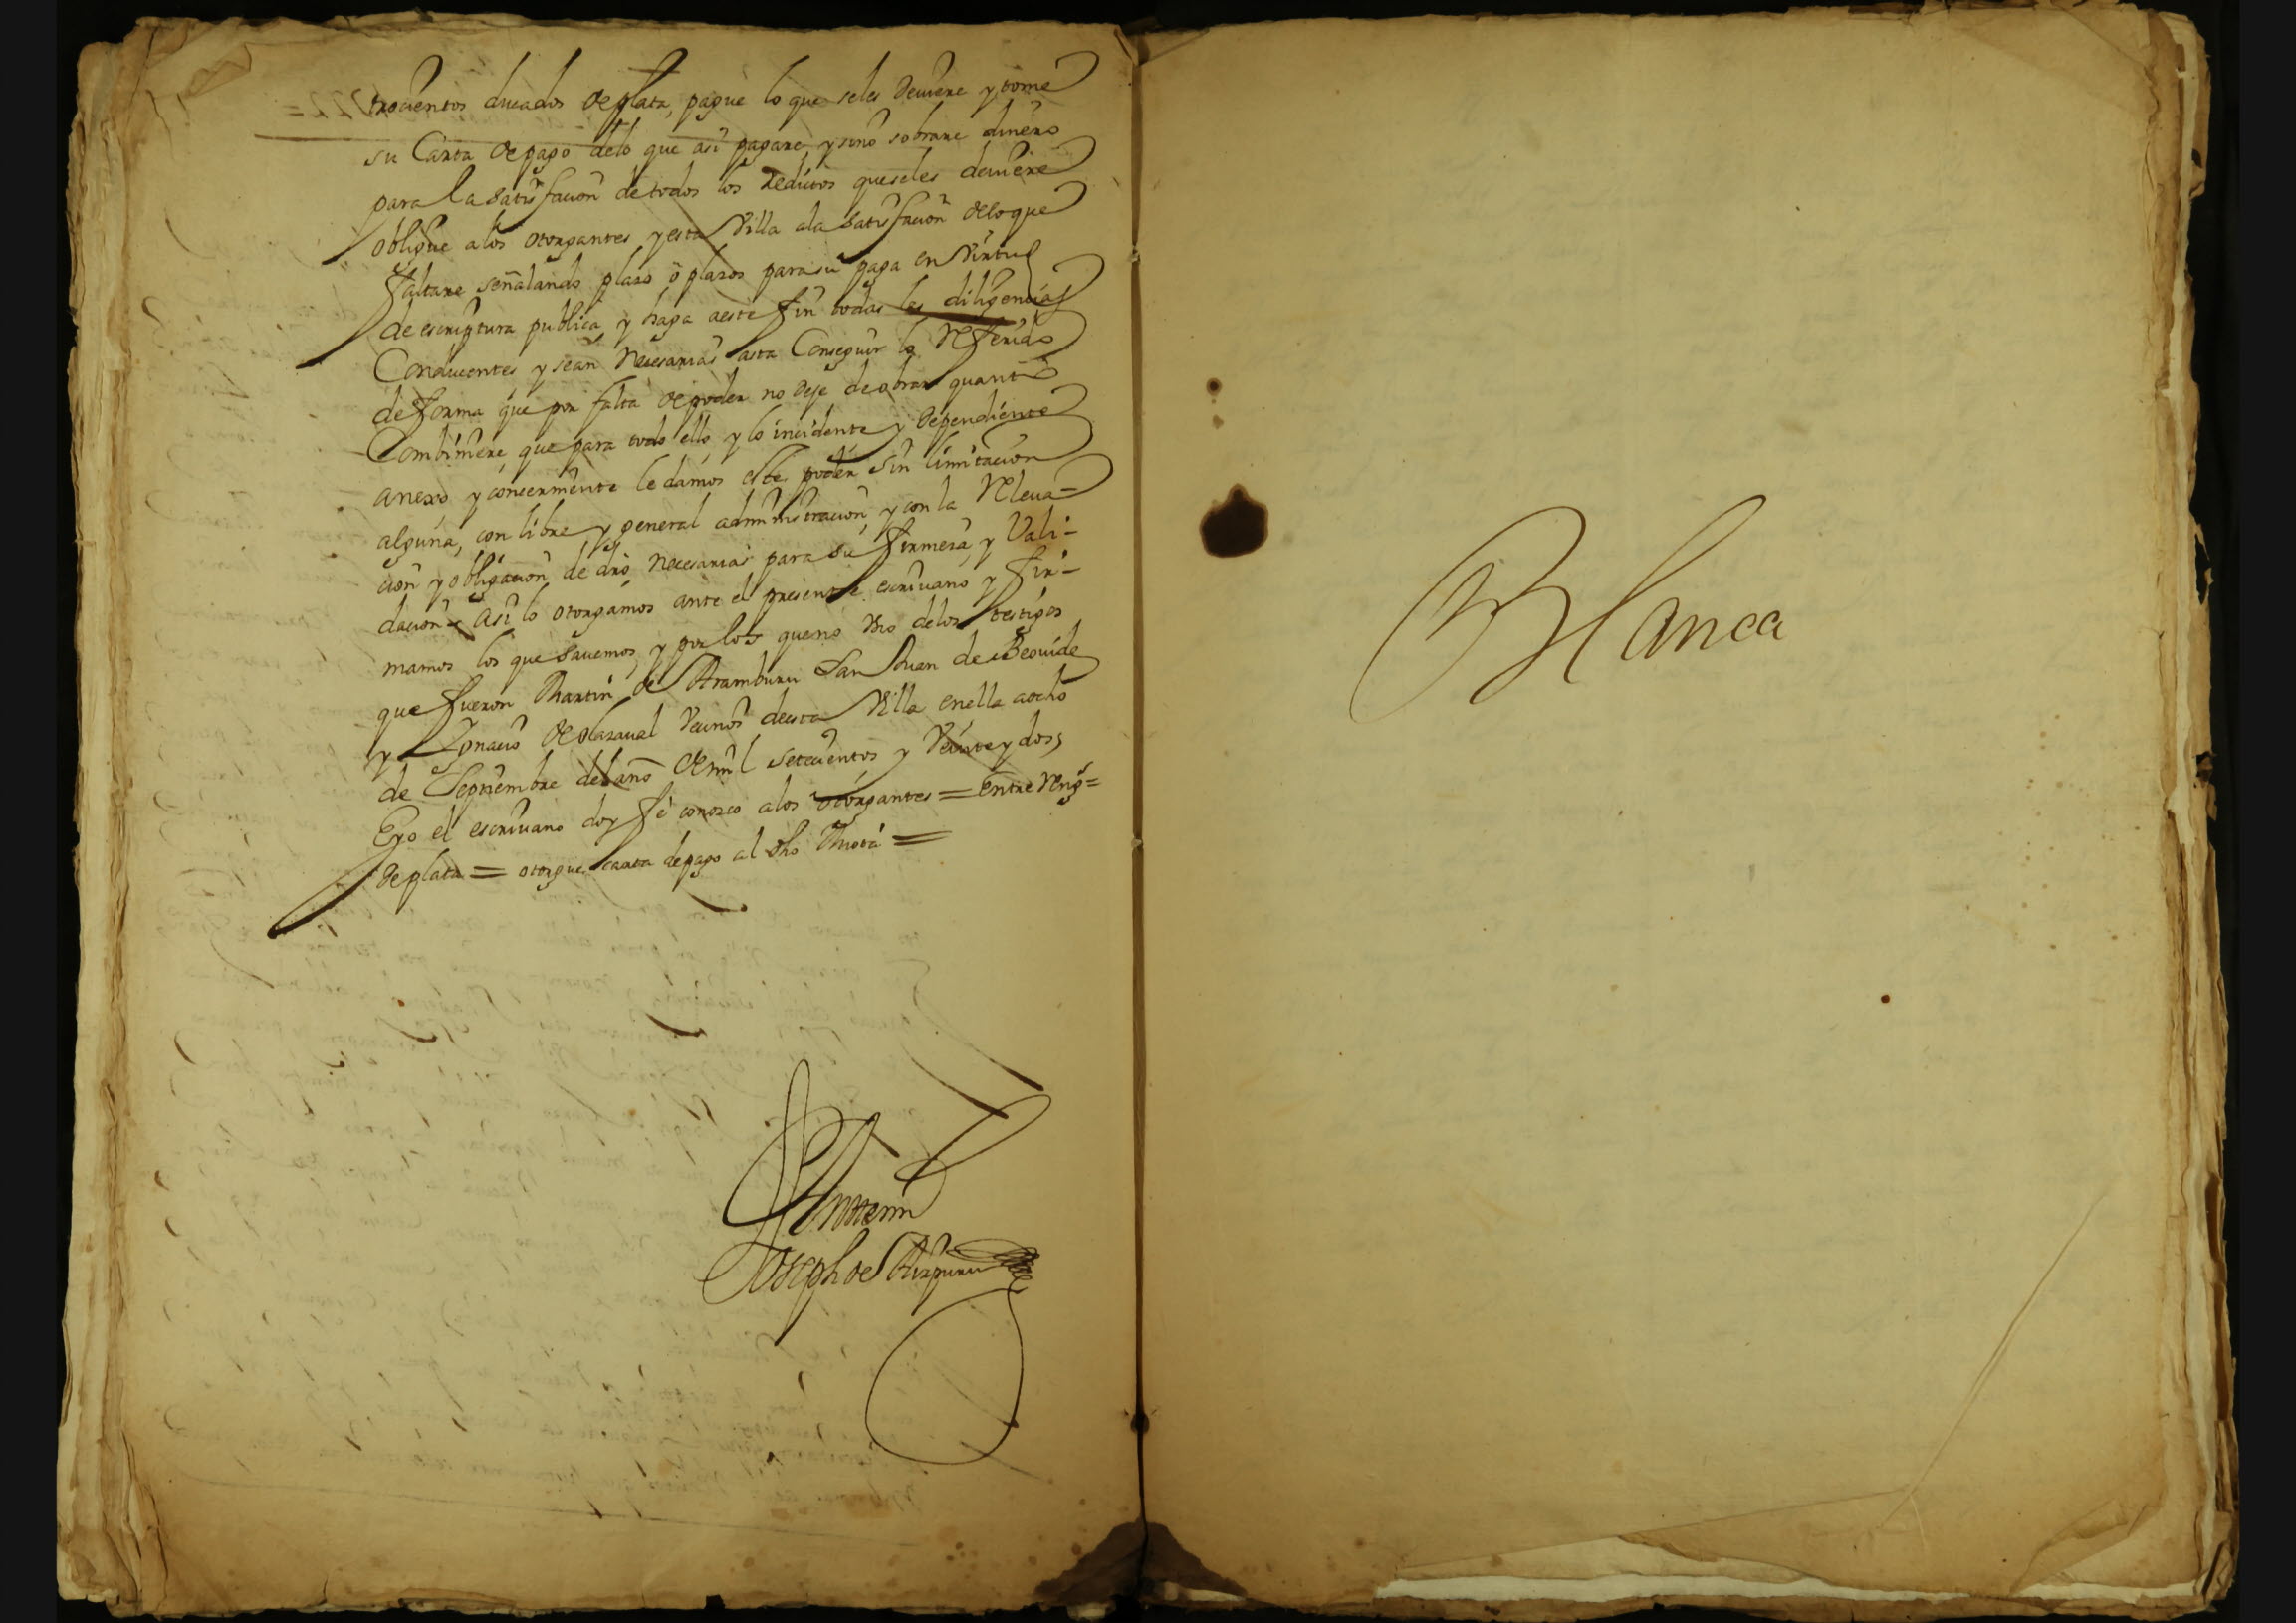 trocientos ducados de plata, pague lo que seles deviere y tome
su Carta de pago delo que asi pagare, y sino sobrare dinero
para la satisfacion de todos los reditos que seles deviere
obligue a los otorgantes y esta Villa ala satisfacion delo que
faltare señalando plazo o plazos para su paga en Virtud
de escriptura publica y haga aeste fin todas las diligencias
Conducentes y sean necesarias asta Conseguir lo referido
de forma que por falta de poder no deje de obrar quanto
Combiniere, que para todo ello, y lo incidente y dependiente
anexo y concerniente le damos este poder sin limitacion
alguna, con libre y general administracion, y con la releva=
cion y obligacion de dro necesarias para su firmeza, y Vali-
dacion asi lo otorgamos ante el presente escrivano y fir-
mamos los que savemos, y por los que no Uno delos testigos
que fueron Martin de Aramburu San Juan de Beovide
y Ignacio de olazaval Vecinos de esta Villa enella a ocho
de Septiembre del año de mil setecientos y Veinte y dos,
E yo el escrivano doy fe conozco a los otorgantes = entre reng=
de plata = otorgue carta de pago al dho
Ante mi
Joseph de Aizpuru
Blanca